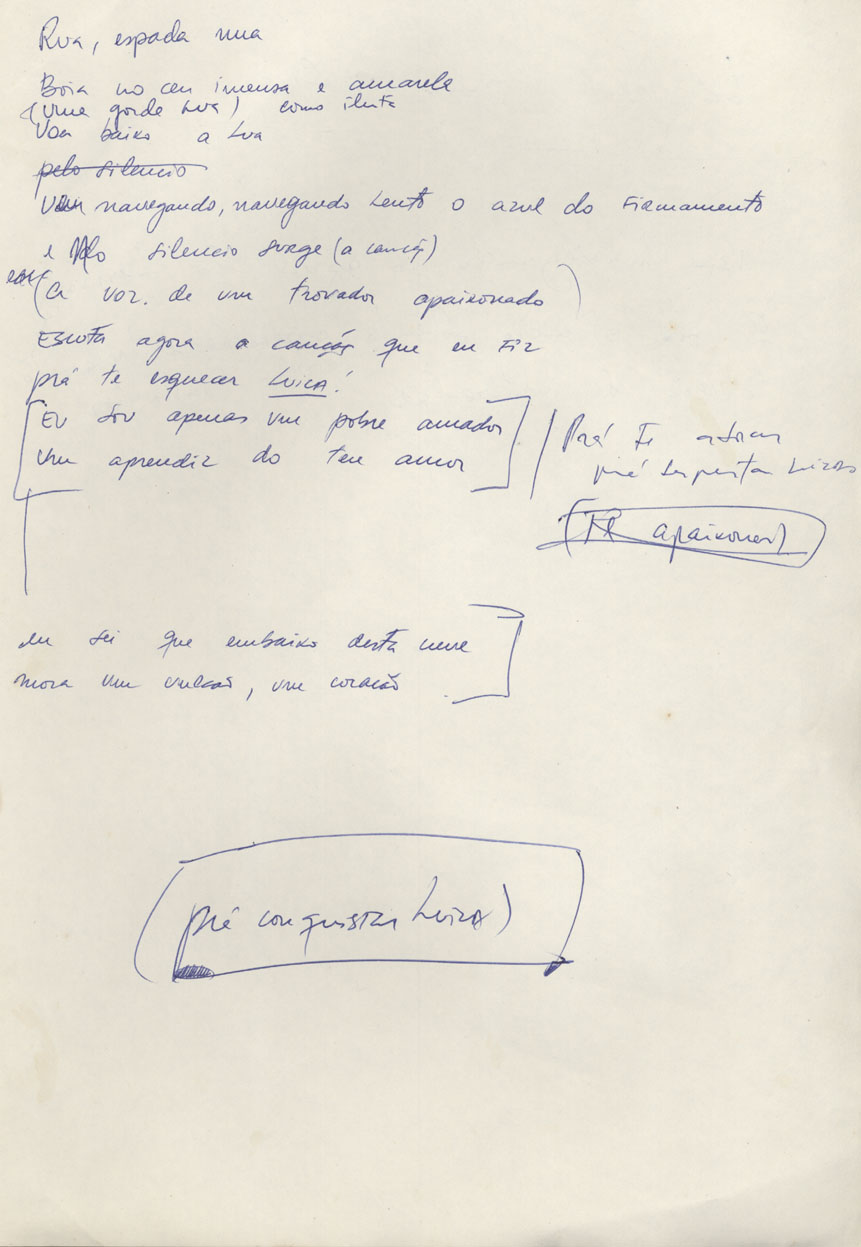 Rua, espada nua
Boia no ceu imensa e amarela
(uma gorda lua) como
Voa baixo a Lua
pelo silencio
Vem navegando, navegando lento o azul do firmamento
e Pelo silencio surge (a canção)
(a voz. de um trovador apaixonado)
Escuta agora a canção que eu fiz
prá te esquecer Luiza!
[Eu sou apenas um pobre amador
um aprendiz do teu amor]
Prá te
prá despertar Luiza
(Te apaixonei)
eu sei que embaixo desta neve
mora um vulcão, um coração]
(prá conquistar Luiza)